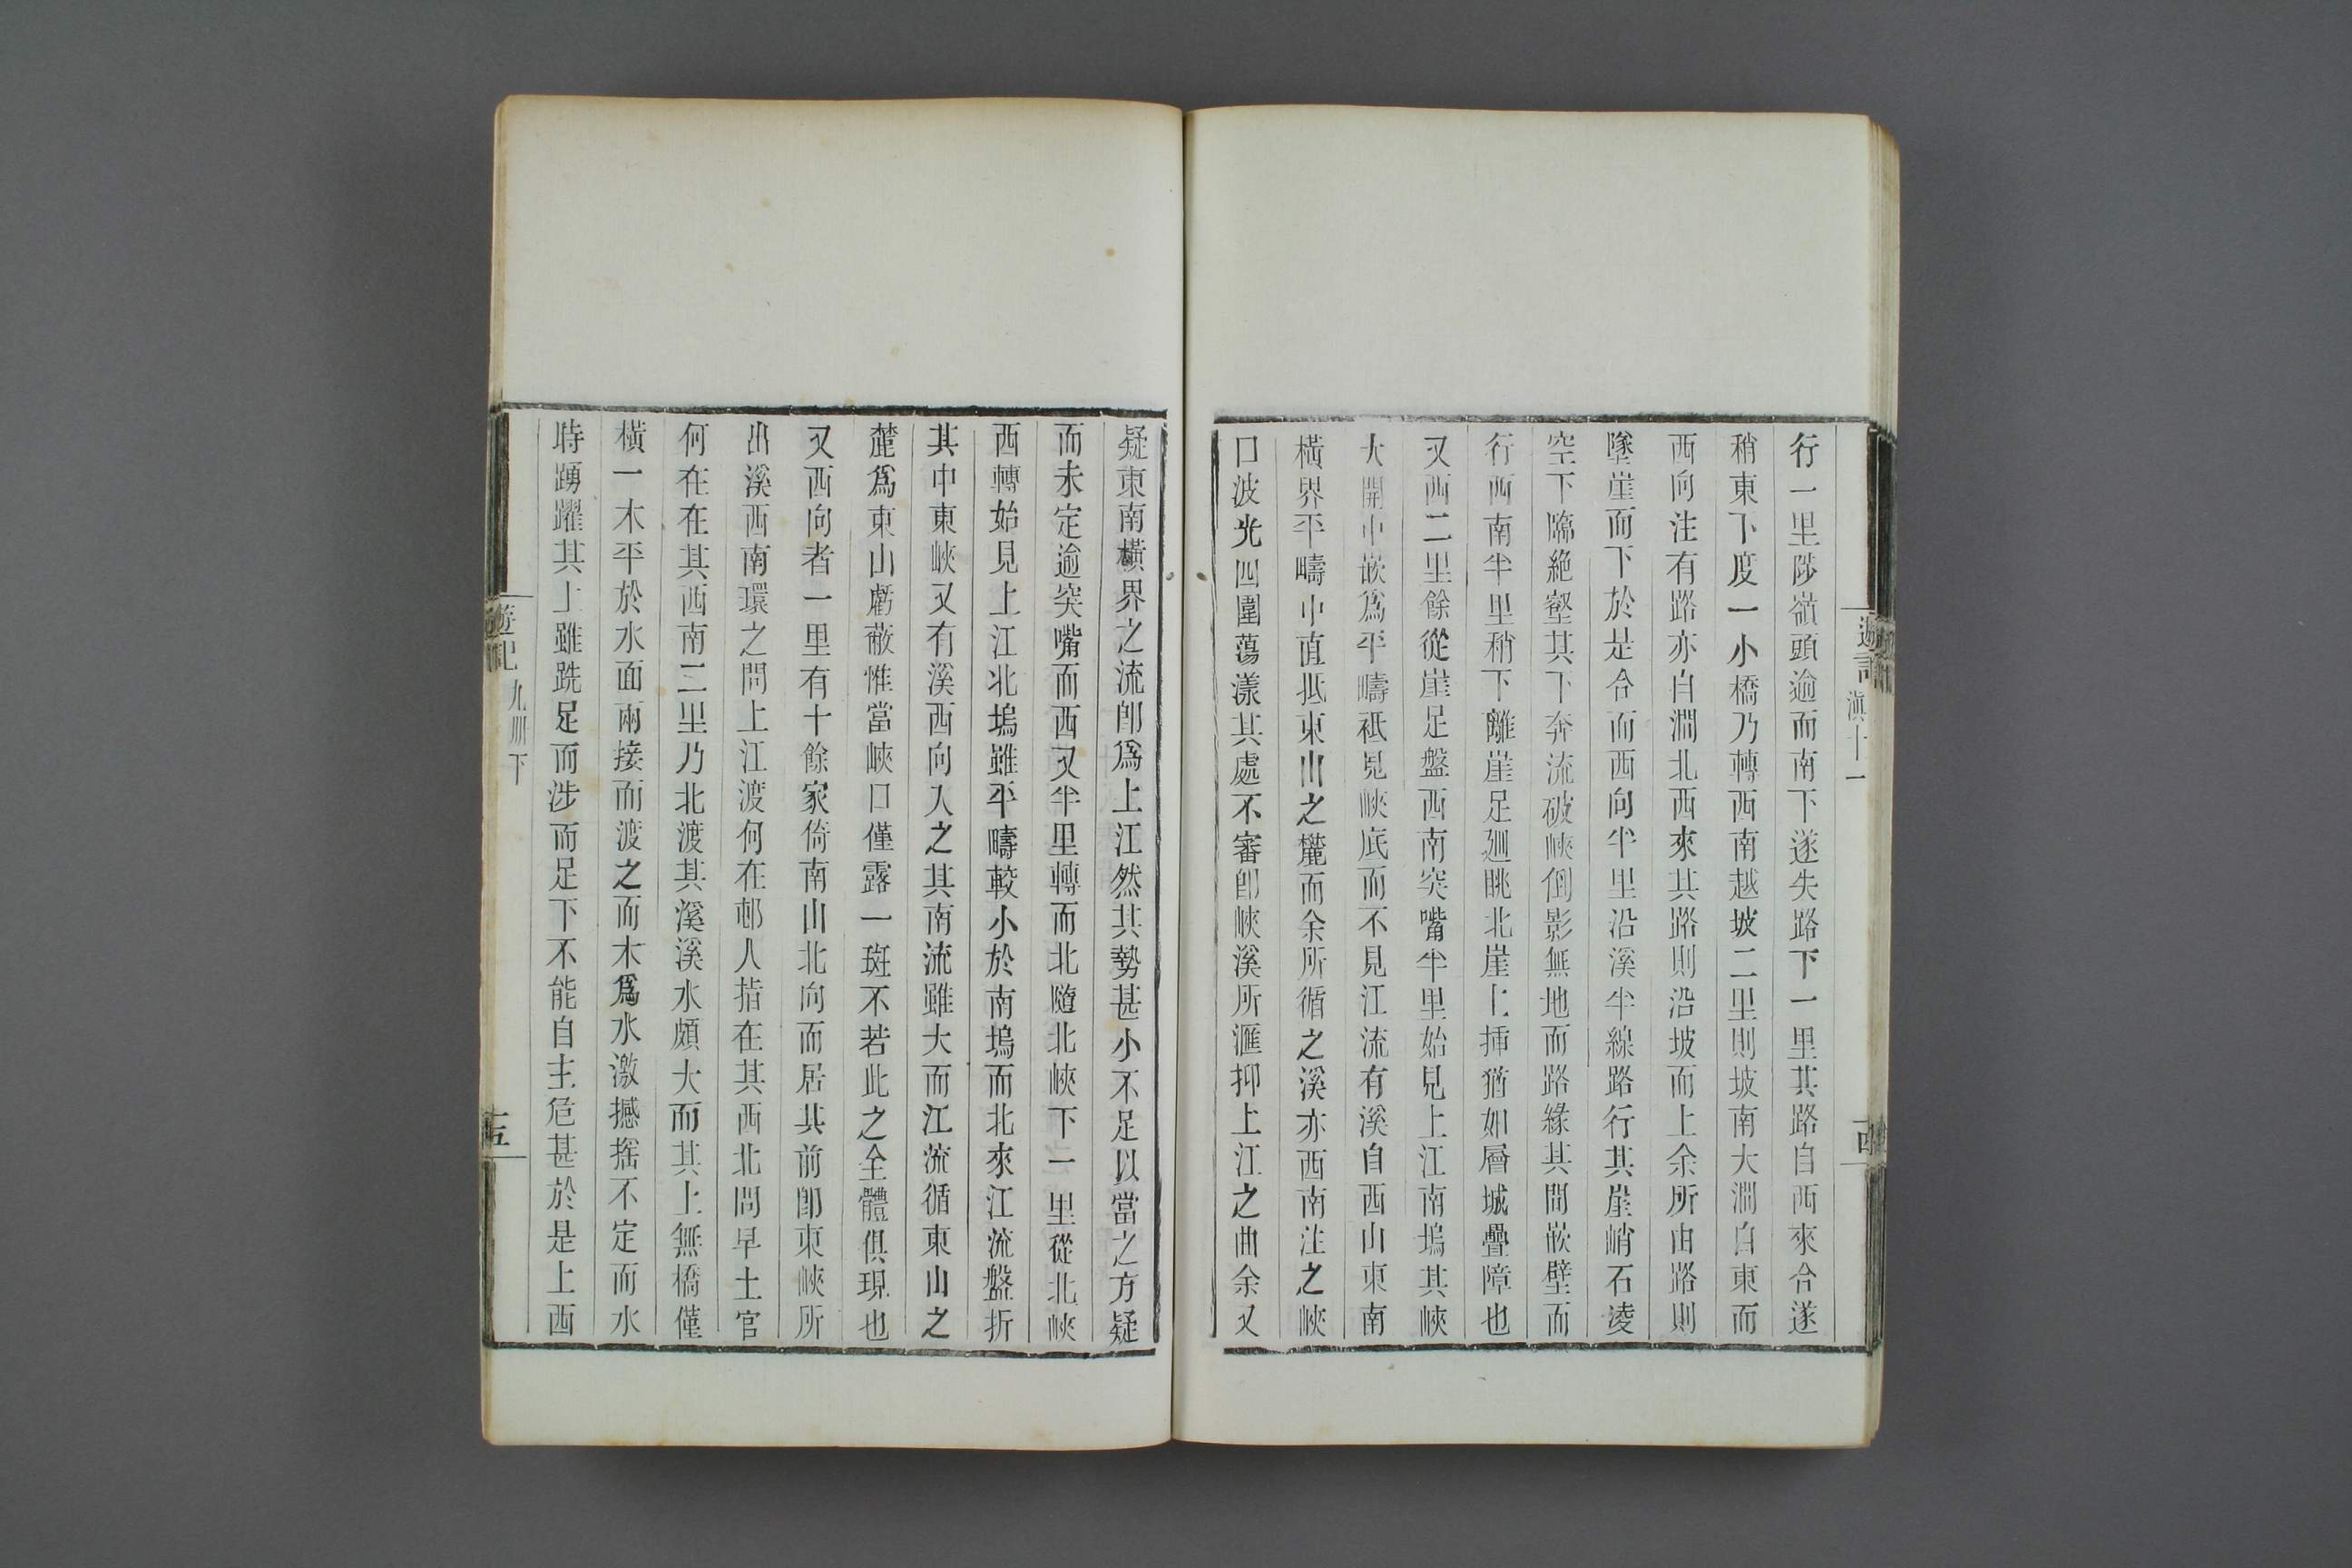 行一里陟嶺頭逾而南下遂失路下一里其路自西來合遂
稍東下度一小橋乃轉西南越坡二里則坡南大澗自東而
西向注有路亦自澗北西來其路則沿坡而上余所由路則
墜崖而下於是合而西向半里沿溪半線路行其崖峭石凌
空下臨絶壑其下奔流破峽倒影無地而路緣其間嵌壁而
行西南半里稍下離崖足廻眺北崖上挿猶如層城疊障也
又西二里餘從崖足盤西南突嘴半里始見上江南塢其峽
大開中嵌爲平疇祗見峽底而不見江流有溪自西山東南
橫界平疇中直抵東山之麓而余所循之溪亦西南注之峽
口波光四圍蕩漾其處不審卽峽溪所滙抑上江之曲余又
遊記
滇十一
疑東南橫界之流卽爲上江然其勢甚小不足以當之方疑
而未定逾突嘴而西又半里轉而北隨北峽下一里從北峽
西轉始見上江北塢雖平疇較小於南塢而北來江流盤折
其中東峽又有溪西向入之其南流雖大而江流循東山之
麓爲東山虧蔽惟當峽口僅露一斑不若此之全體俱現也
又西向者一里有十餘家倚南山北向而居其前卽東峽所
出溪西南環之問上江渡何在邨人指在其西北問早土官
何在在其西南二里乃北渡其溪溪水頗大而其上無橋僅
橫一木平於水面兩接而渡之而木爲水激撼搖不定而水
時踴躍其上雖跣足而涉而足下不能自主危甚於是上西
遊記
九冊下
十五